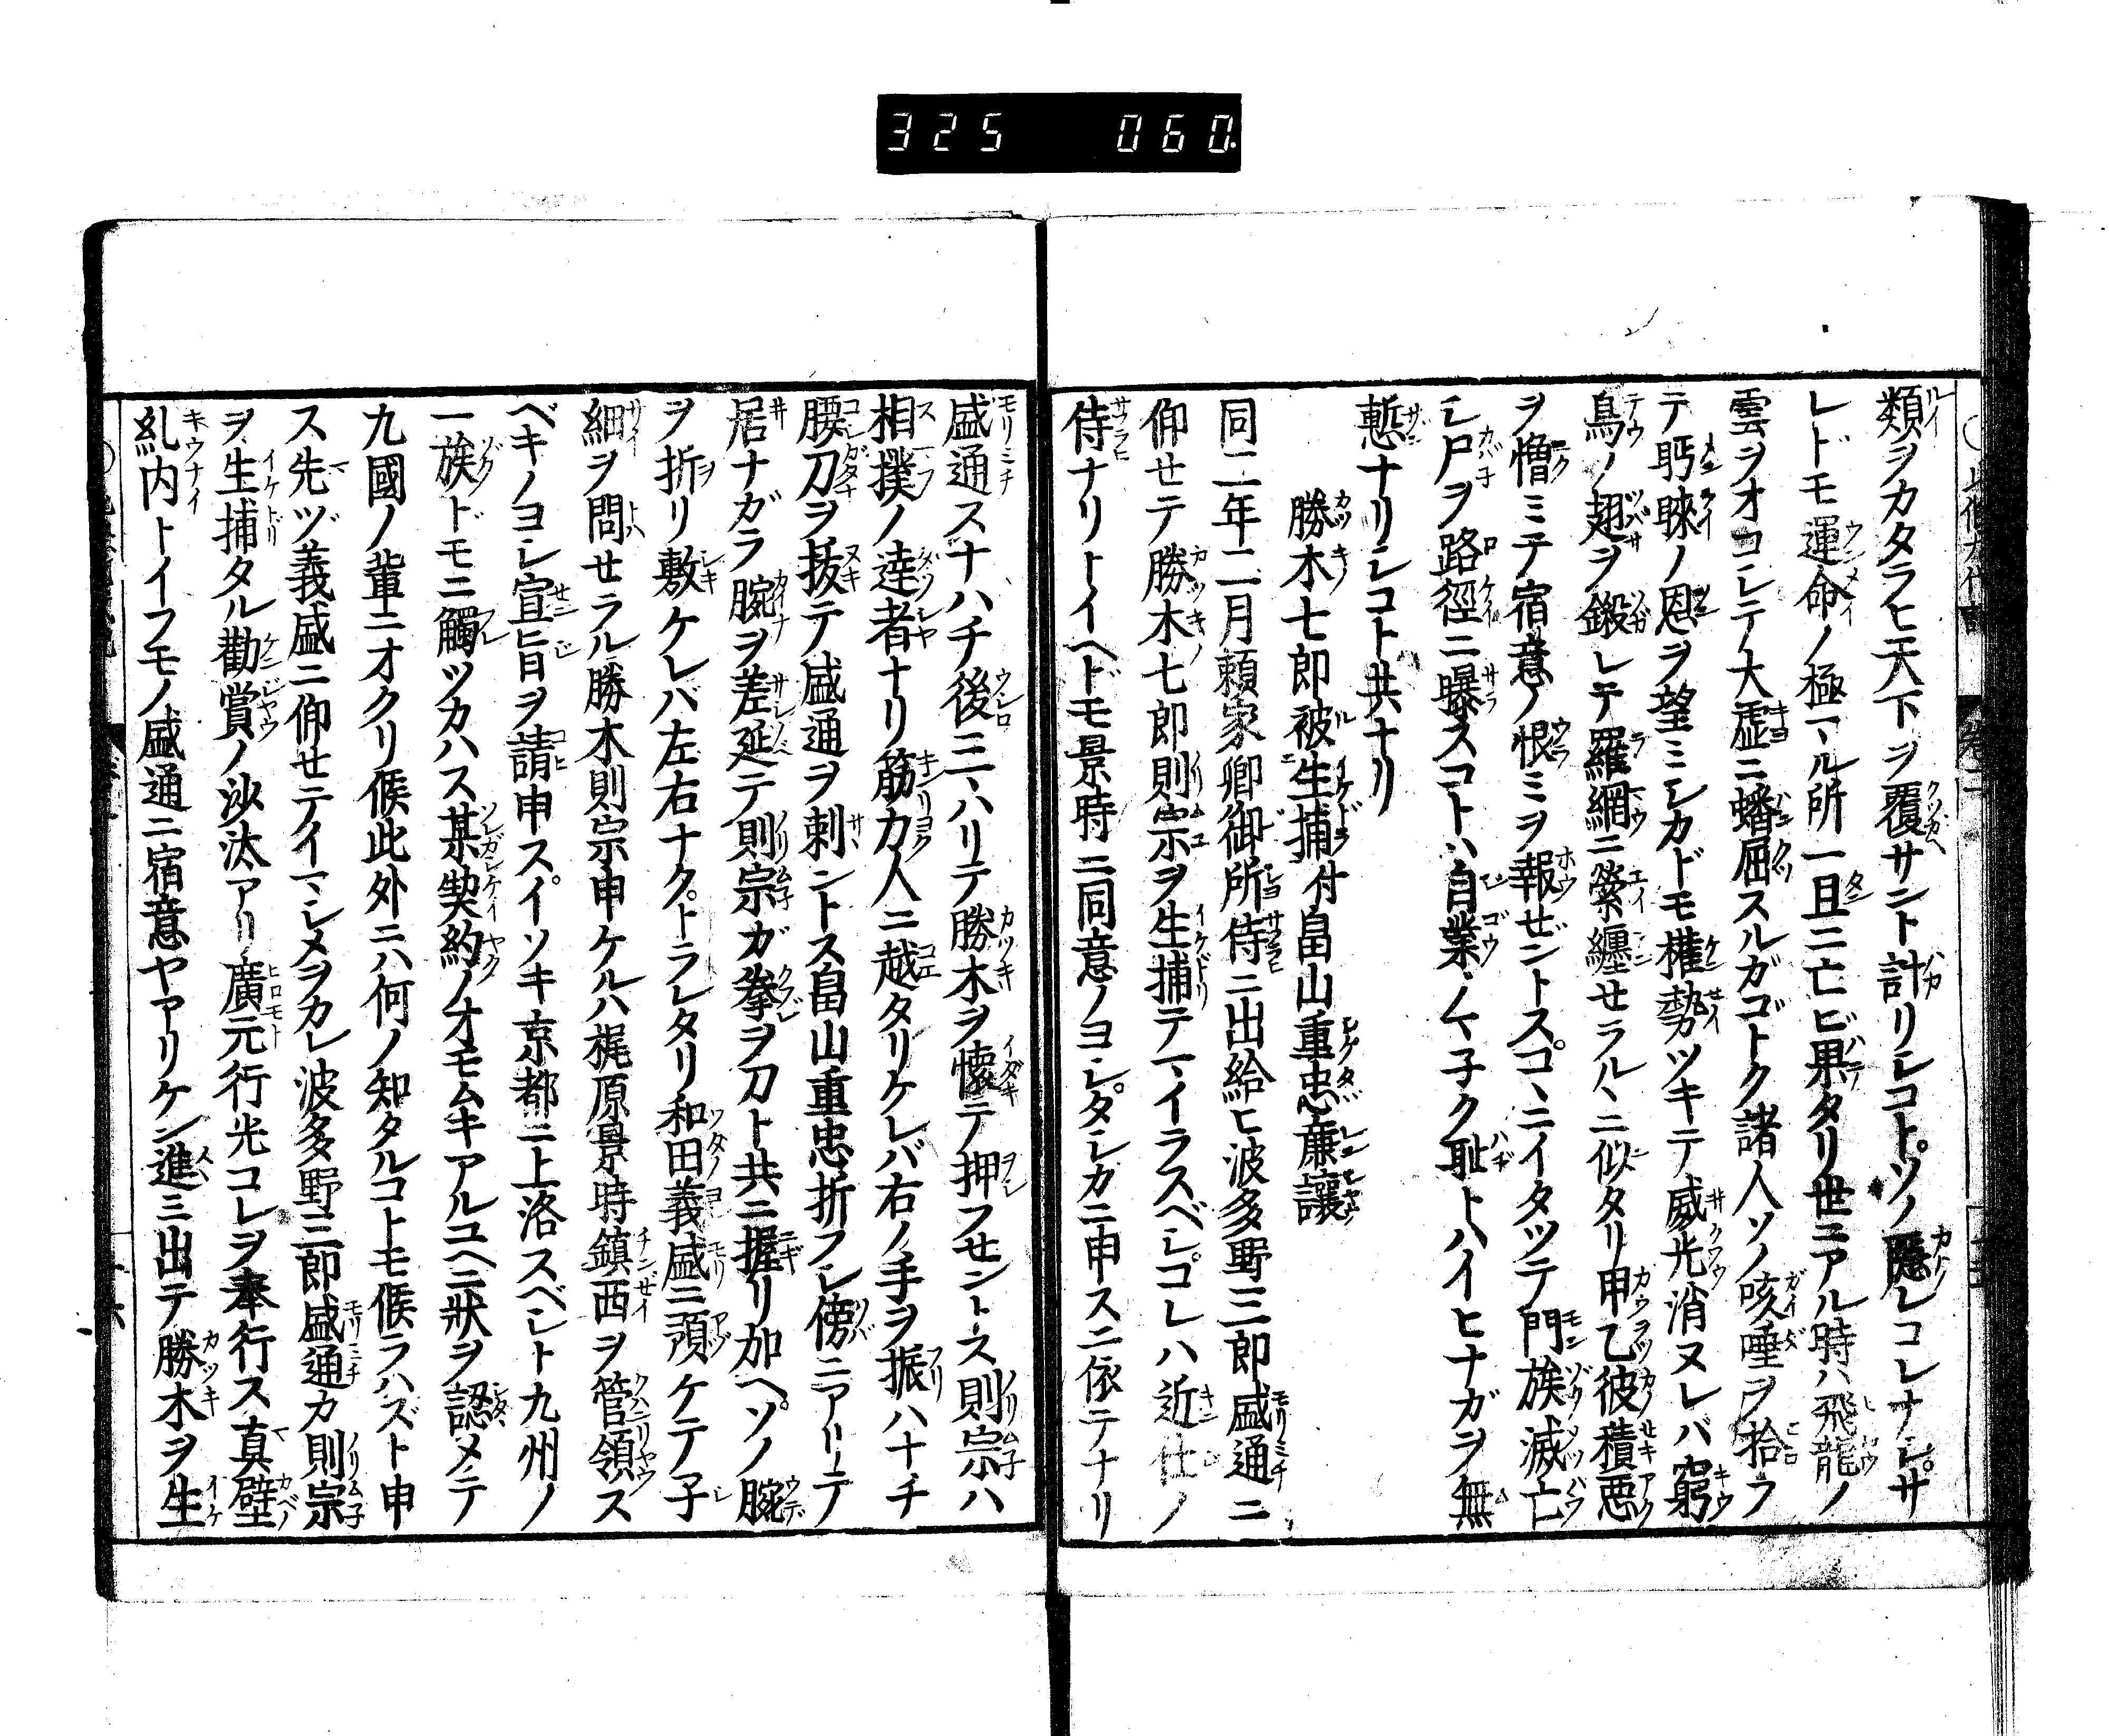 325 060
類ヲカタラヒ天下ヲ覆サント計リシコトソノ隱レコレナシサ
レドモ運命ノ極マル所一旦ニ亡ビ果タリ世ニアル時ハ飛龍ノ
雲ヲオコシテ大虛ニ蟠屈スルガゴトク諸人ソノ咳唾ヲ拾フ
テ眄睞ノ恩ヲ望ミシカドモ權勢ツキテ威光消ヌレバ窮
鳥ノ翅ヲ鎩レテ羅網ニ縈纏セラルヽニ似タリ甲乙彼積惡
ヲ憎ミテ宿意ノ恨ミヲ報ゼントスコヽニイタツテ門族滅亡
シ尸ヲ路徑ニ曝スコトハ自業ノマ子ク耻トハイヒナガラ無
慙ナリシコト共ナリ
勝木七郎被生捕付畠山重忠廉讓
同二年二月賴家卿御所侍ニ出給ヒ波多野三郎盛通ニ
仰せテ勝木七郎則宗ヲ生捕テマイラスベシコレハ近仕ノ
侍ナリトイヘドモ景時ニ同意ノヨシタシカニ申スニ依テナリ
盛通スナハチ後ニマハリテ勝木ヲ懷テ押フせントス則宗ハ
相撲ノ達者ナリ筋力人ニ越タリケレバ右ノ手ヲ振ハナチ
腰刀ヲ拔テ盛通ヲ刺ントス畠山重忠折フシ傍ニアリテ
居ナガラ腕ヲ差延テ則宗ガ拳ヲ刀ト共ニ握リ加ヘソノ腕
ヲ折リ敷ケレバ左右ナクトラレタリ和田義盛ニ預ケテ子
細ヲ問せラル勝木則宗申ケルハ梶原景時鎮西ヲ管領ス
ベキノヨシ宣旨ヲ請申スイソキ京都ニ上洛スベシト九州ノ
一族ドモニ觸ツカハス某契約ノオモムキアルユヘニ狀ヲ認メテ
九國ノ輩ニオクリ候此外ニハ何ノ知タルコトモ候ラハズト申
ス先ヅ義盛ニ仰せテイマシメヲカレ波多野三郎盛通カ則宗
ヲ生捕タル勸賞ノ沙汰アリ廣元行光コレヲ奉行ス真壁
糺内トイフモノ盛通ニ宿意ヤアリケン進ミ出テ勝木ヲ生